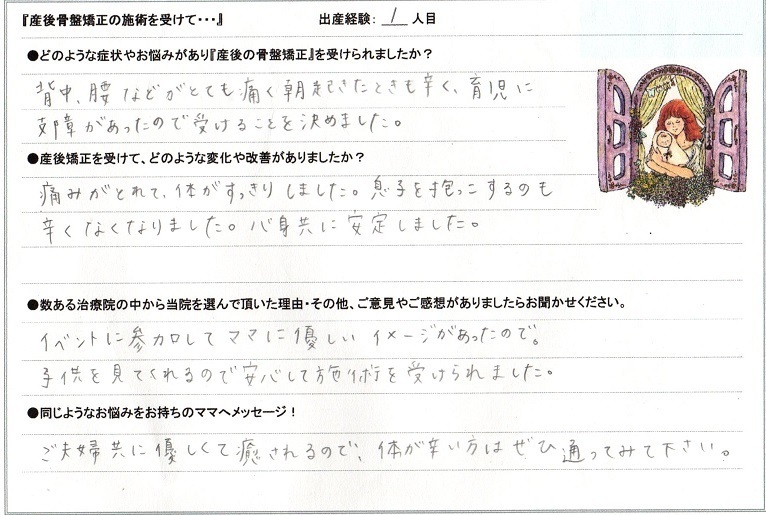 『産後骨盤矯正の施術を受けて・・・』 出産経験： 1 人目
●どのような症状やお悩みがあり『産後の骨盤矯正』を受けられましたか？
背中、腰などがとても痛く朝起きたときも辛く、育児に
支障があったので受けることを決めました。
●産後矯正を受けて、どのような変化や改善がありましたか？
痛みがとれて、体がすっきりしました。息子を抱っこするのも
辛くなくなりました。心身共に安定しました。
●数ある治療院の中から当院を選んで頂いた理由・その他、ご意見やご感想がありましたらお聞かせください。
イベントに参加してママに優しいイメージがあったので。
子供を見てくれるので安心して施術を受けられました。
●同じようなお悩みをお持ちのママへメッセージ！
ご夫婦共に優しくて癒されるので、体が辛い方はぜひ通ってみて下さい。